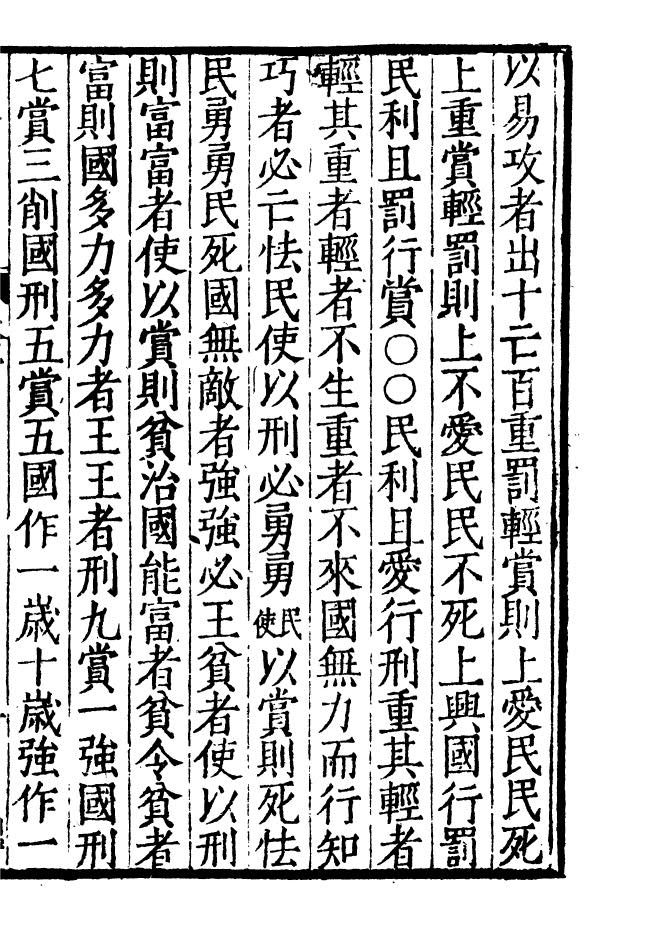 以易攻者出十亡百重罰輕賞則上愛民民死
上重賞輕罰則上不愛民民不死上興國行罰
民利且罰行賞○○民利且愛行刑重其輕者
輕其重者輕者不生重者不來國無力而行知
巧者必亡怯民使以刑必勇勇民使以賞則死怯
民勇勇民死國無敵者強強必王貧者使以刑
則富富者使以賞則貧治國能富者貧令貧者
富則國多力多力者王王者刑九賞一強國刑
七賞三削國刑五賞五國作一歲十歲強作一